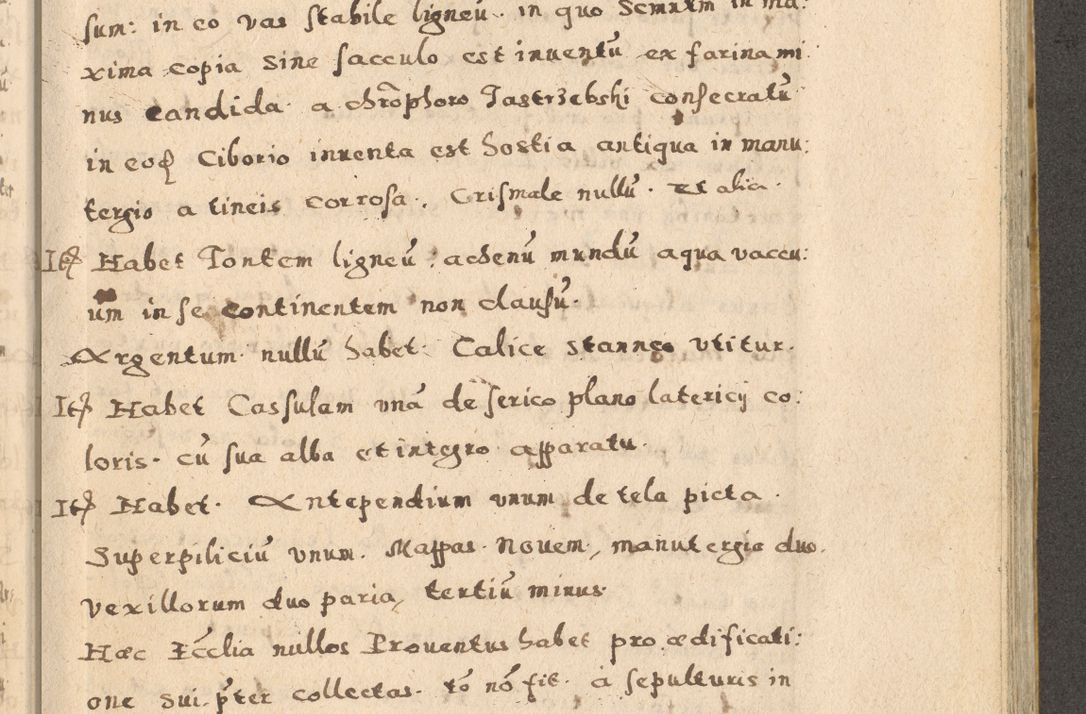 sum: in eo vas stabile ligneū. in quo Semntm in ma:
xima copia Sine sacculo est inventū ex farina mi
nus candida. a chrōphoro Jastrzebski consecratū
in eoq̨ Ciborio inventa est hostia antiqua in manu:
tergio a tineis corrosa. Crismale nullū. et alia.
Itp̄ Habet Fontem ligneū. ac senū mundū aqua vaccu:
um in se continentem non clausū.
Argentum nullū habet. Calice stanneo utitur.
Itp̄ Habet Cassulam unā de serico plano latericij co:
loris. cū sua alba et integro apparatu.
Itp̄ Habet. Antependium unum de tela picta.
Superpiliciū unum. Mappas. Novem, manutergia duo.
vexillorum duo paria, tertiū minus
Hæc Ecc̄lia nullos Proventus habet pro ædificati:
one sui p̄ter collectas. tō nō fit. à sepulturis in